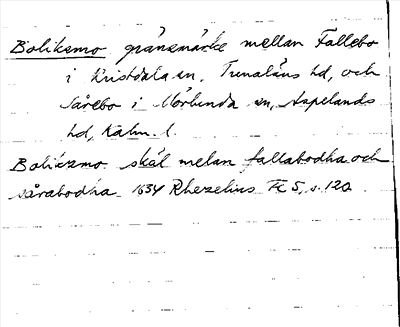 Boliksmo gränsmärke mellan Fallebo
i Kristdala sn, Tunaläns hd, och
Sårebo i Mörlunda sn, Aspelands
hd, Kalm. l.
Bolikzmo skäl melan fallabodha och
sårabodha 1634 Rhezelius Fc 5, s. 120